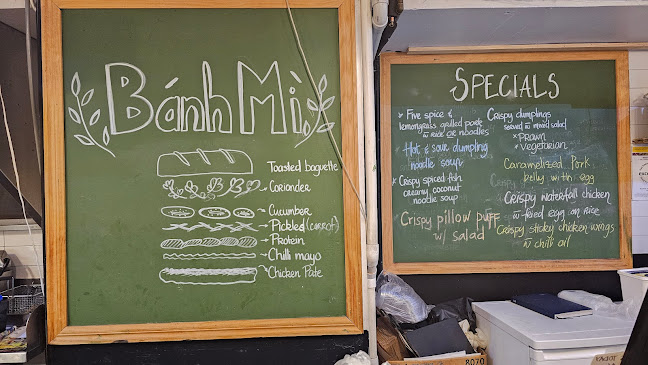 Bánh Mì
Toasted baguette
Coriander
Cucumber
Pickled (carrot)
Protein
Chilli mayo
Chicken Pate
SPECIALS
* Five spice &
lemongrass grilled pork
w rice or noodles
Hot & sour dumpling
noodle soup
* Crispy spiced fish
creamy coconut
noodle soup
Crispy pillow puff
w/ salad
Crispy dumplings
served w mixed salad
* Prawn
* Vegetarian
Caramelized Pork
belly with egg
Crispy waterfall chicken
w fried egg on rice
Crispy sticky chicken wings
w chilli oil